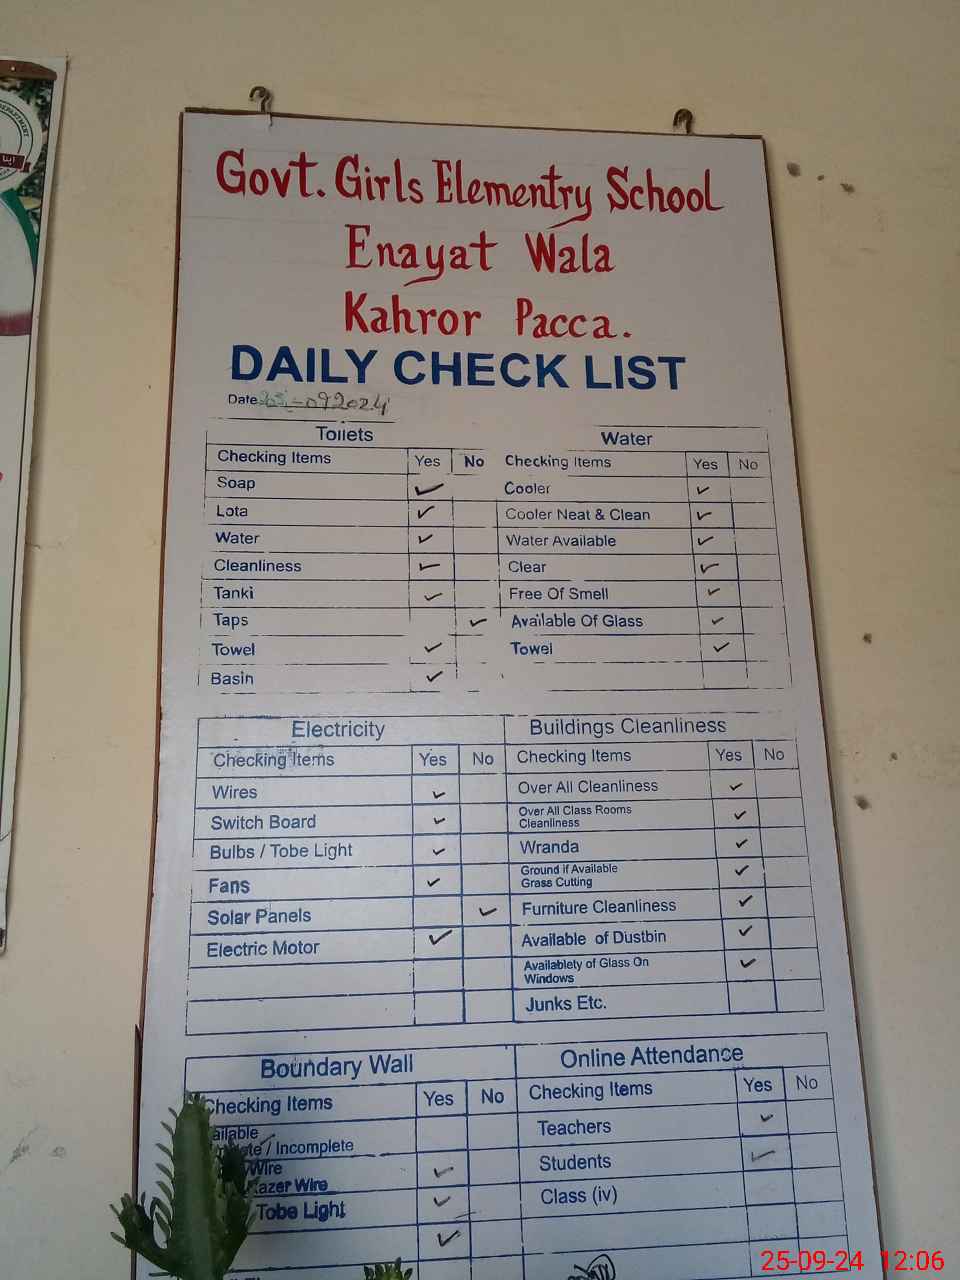 DEPARTMENT
Govt. Girls Elementry School
Enayat Wala
Kahror Pacca.
DAILY CHECK LIST
Date 25-092024
Toilets
Checking Items Yes No
Soap ✓
Lota ✓
Water ✓
Cleanliness ✓
Tanki ✓
Taps ✓
Towel ✓
Basin ✓
Water
Checking Items Yes No
Cooler ✓
Cooler Neat & Clean ✓
Water Available ✓
Clear ✓
Free Of Smell ✓
Available Of Glass ✓
Towel ✓
Electricity
Checking Items Yes No
Wires ✓
Switch Board ✓
Bulbs / Tobe Light ✓
Fans ✓
Solar Panels ✓
Electric Motor ✓
Buildings Cleanliness
Checking Items Yes No
Over All Cleanliness ✓
Over All Class Rooms
Cleanliness ✓
Wranda ✓
Ground if Available
Grass Cutting ✓
Furniture Cleanliness ✓
Available of Dustbin ✓
Availablety of Glass On
Windows ✓
Junks Etc.
Boundary Wall
Checking Items Yes No
/ Incomplete
Wire ✓
Razer Wire
Tobe Light ✓
✓
Online Attendance
Checking Items Yes No
Teachers ✓
Students ✓
Class (iv)
25-09-24 12:06